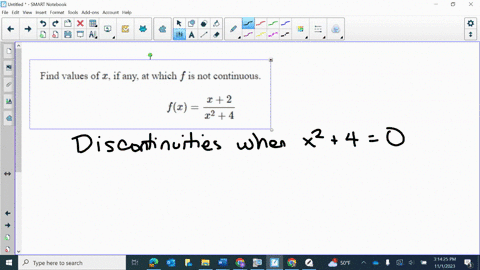 Untitled * - SMART Notebook
File Edit View Insert Format Tools Add-ons Account Help
Find values of x, if any, at which f is not continuous.
f(x) = \frac{x + 2}{x² + 4}
Discontinuities when x² + 4 = 0
Type here to search
50°F
2:14:25 PM
11/1/2023